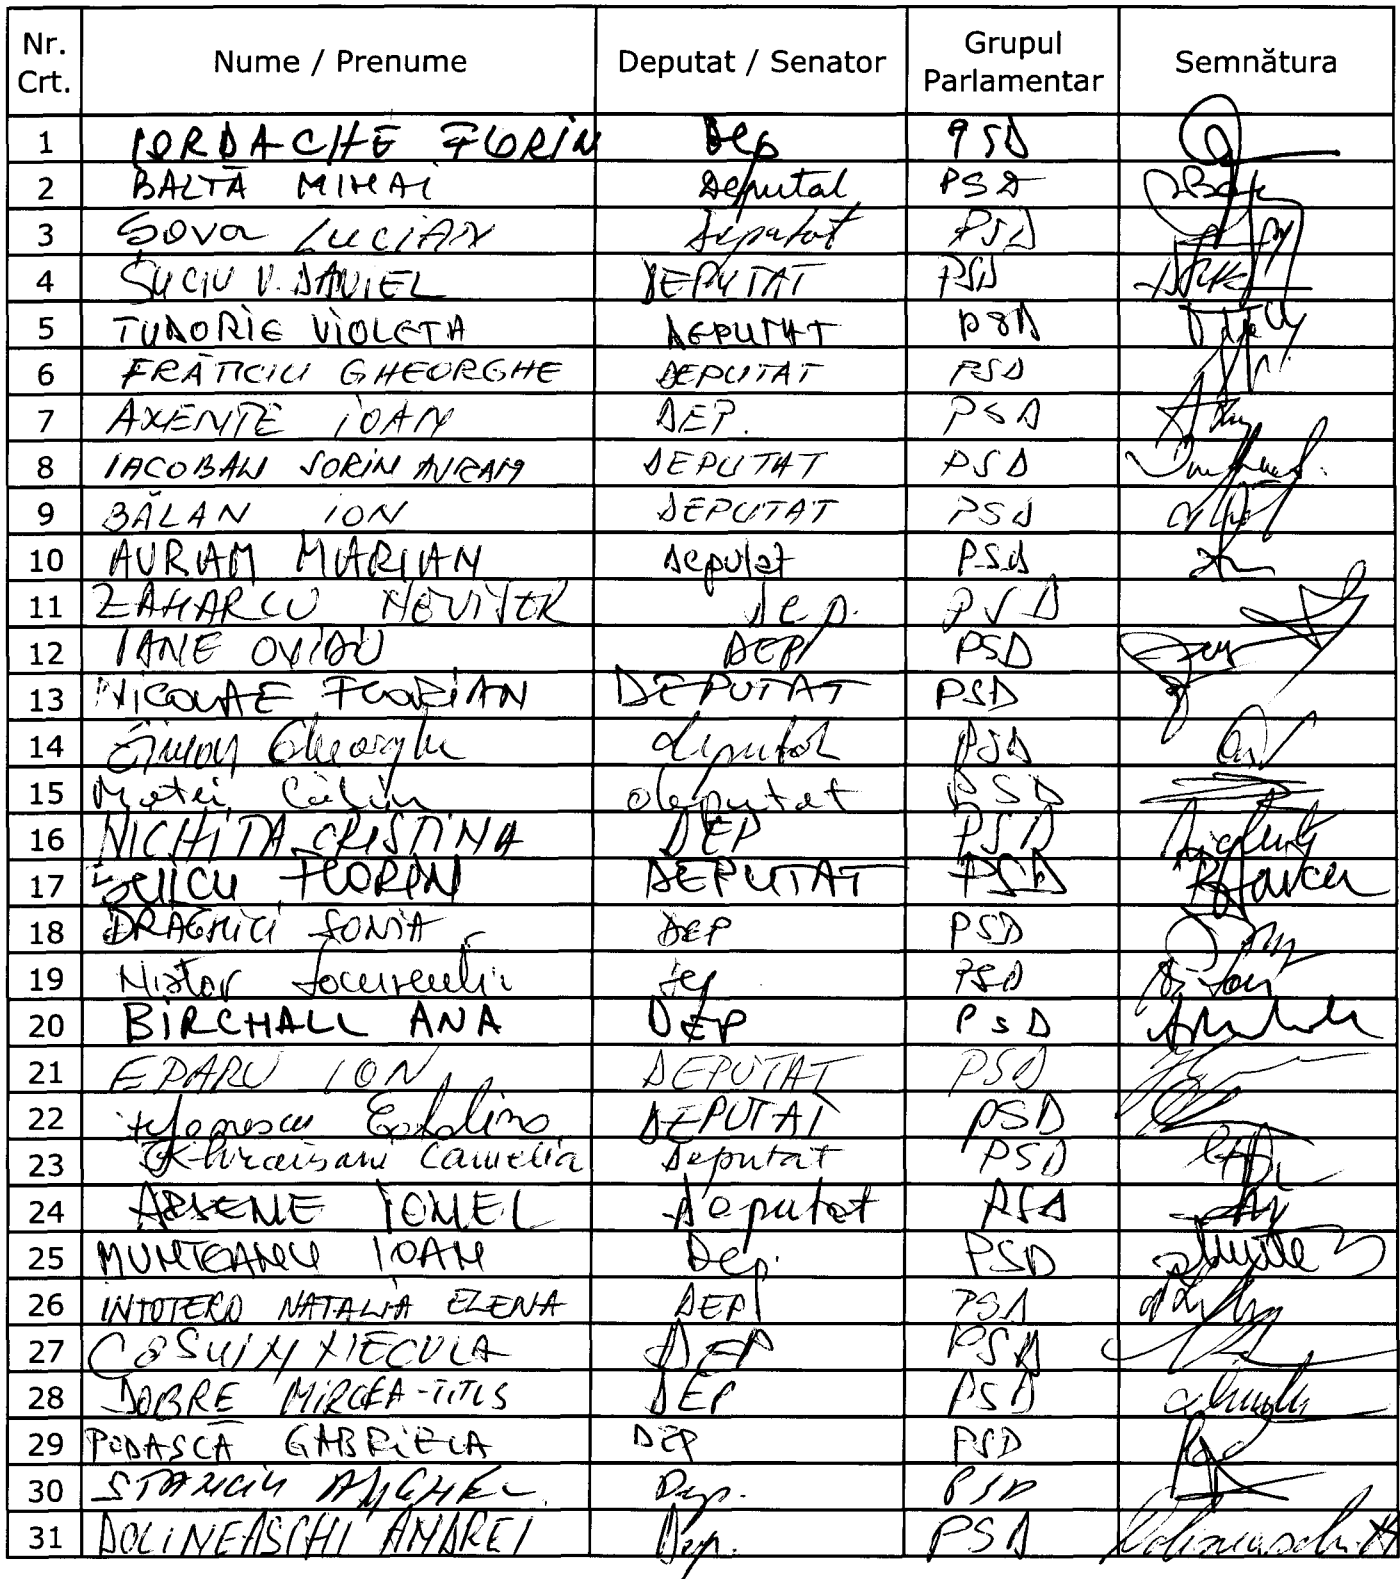 Nr. Crt. Nume / Prenume Deputat / Senator Grupul Parlamentar Semnătura
1 IORDACHE FLORIN Dep PSD
2 BALTĂ MIHAI Deputat PSD
3 Șova LUCIAN Deputat PSD
4 SUCIU V. DANIEL DEPUTAT PSD
5 TUDORIE VIOLETA DEPUTAT PSD
6 FRĂTICIU GHEORGHE DEPUTAT PSD
7 AXENTE IOAN DEP. PSD
8 IACOBAN SORIN AVRAM DEPUTAT PSD
9 BĂLAN ION DEPUTAT PSD
10 AVRAM MARIAN Deputat PSD
11 ZAHARCU NEVIJER Dep. PSD
12 IANE OVIDIU DEP PSD
13 NICOLAE FLORIAN DEPUTAT PSD
14 Șimon Gheorghe deputat PSD
15 Matei Călin deputat PSD
16 NICHITA CRISTINA DEP PSD
17 FLORIN DEPUTAT PSD
18 DRAGHICI SONIA DEP PSD
19 Nistor Laurențiu Dep PSD
20 BIRCHALL ANA DEP PSD
21 EPARU ION DEPUTAT PSD
22 DEPUTAT PSD
23 Khraisani Camelia Deputat PSD
24 ARSENE IONEL Deputat PSD
25 MUNTEANU IOAN Dep. PSD
26 INTOTERO NATALIA ELENA DEP PSD
27 COSMIN NECULA DEP PSD
28 DOBRE MIRCEA-TITUS DEP PSD
29 PODAȘCĂ GABRIELA DEP PSD
30 STANCIU ANGHEL Dep. PSD
31 DOLINEASCHI ANDREI Dep. PSD